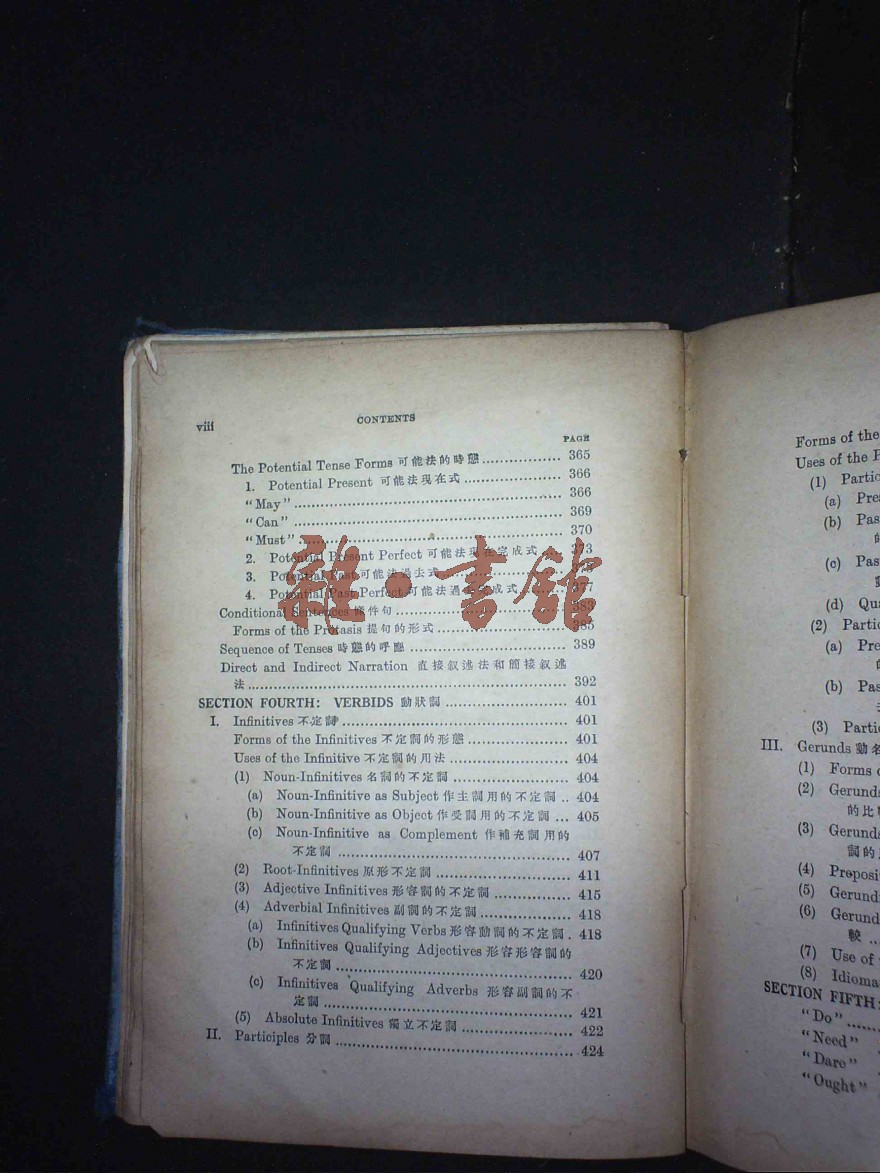 viii
CONTENTS
PAGE
The Potential Tense Forms 可能法的時態 ................ 365
1. Potential Present 可能法現在式 .................... 366
“May” ........................................................ 366
“Can” ........................................................ 369
“Must” ....................................................... 370
2. Potential Present Perfect 可能法現在完成式 .... 373
3. Potential Past 可能法過去式
4. Potential Past Perfect 可能法過去完成式 ........ 377
Conditional Sentences 條件句 .............................. 383
Forms of the Protasis 提句的形式 ........................ 385
Sequence of Tenses 時態的呼應 ............................ 389
Direct and Indirect Narration 直接叙述法和簡接叙述
法 .............................................................. 392
SECTION FOURTH: VERBIDS 動狀詞 ...................... 401
I. Infinitives 不定詞 .......................................... 401
Forms of the Infinitives 不定詞的形態 .................. 401
Uses of the Infinitive 不定詞的用法 ...................... 404
(1) Noun-Infinitives 名詞的不定詞 ...................... 404
(a) Noun-Infinitive as Subject 作主詞用的不定詞 .. 404
(b) Noun-Infinitive as Object 作受詞用的不定詞 ... 405
(c) Noun-Infinitive as Complement 作補充詞用的
不定詞 ................................................ 407
(2) Root-Infinitives 原形不定詞 ......................... 411
(3) Adjective Infinitives 形容詞的不定詞 .............. 415
(4) Adverbial Infinitives 副詞的不定詞 ................. 418
(a) Infinitives Qualifying Verbs 形容動詞的不定詞 . 418
(b) Infinitives Qualifying Adjectives 形容形容詞的
不定詞 ................................................ 420
(c) Infinitives Qualifying Adverbs 形容副詞的不
定詞 ................................................... 421
(5) Absolute Infinitives 獨立不定詞 .................... 422
II. Participles 分詞 ............................................ 424
雜·書館
Forms of the
Uses of the
(1)
(a)
(b)
的
(c)
(d)
(2)
(a)
(b)
(3)
III. Gerunds
(1) Forms
(2)
的比
(3)
詞的
(4)
(5)
(6)
較 ...
(7) Use of
(8)
SECTION FIFTH:
“Do” ......
“Need”
“Dare”
“Ought”